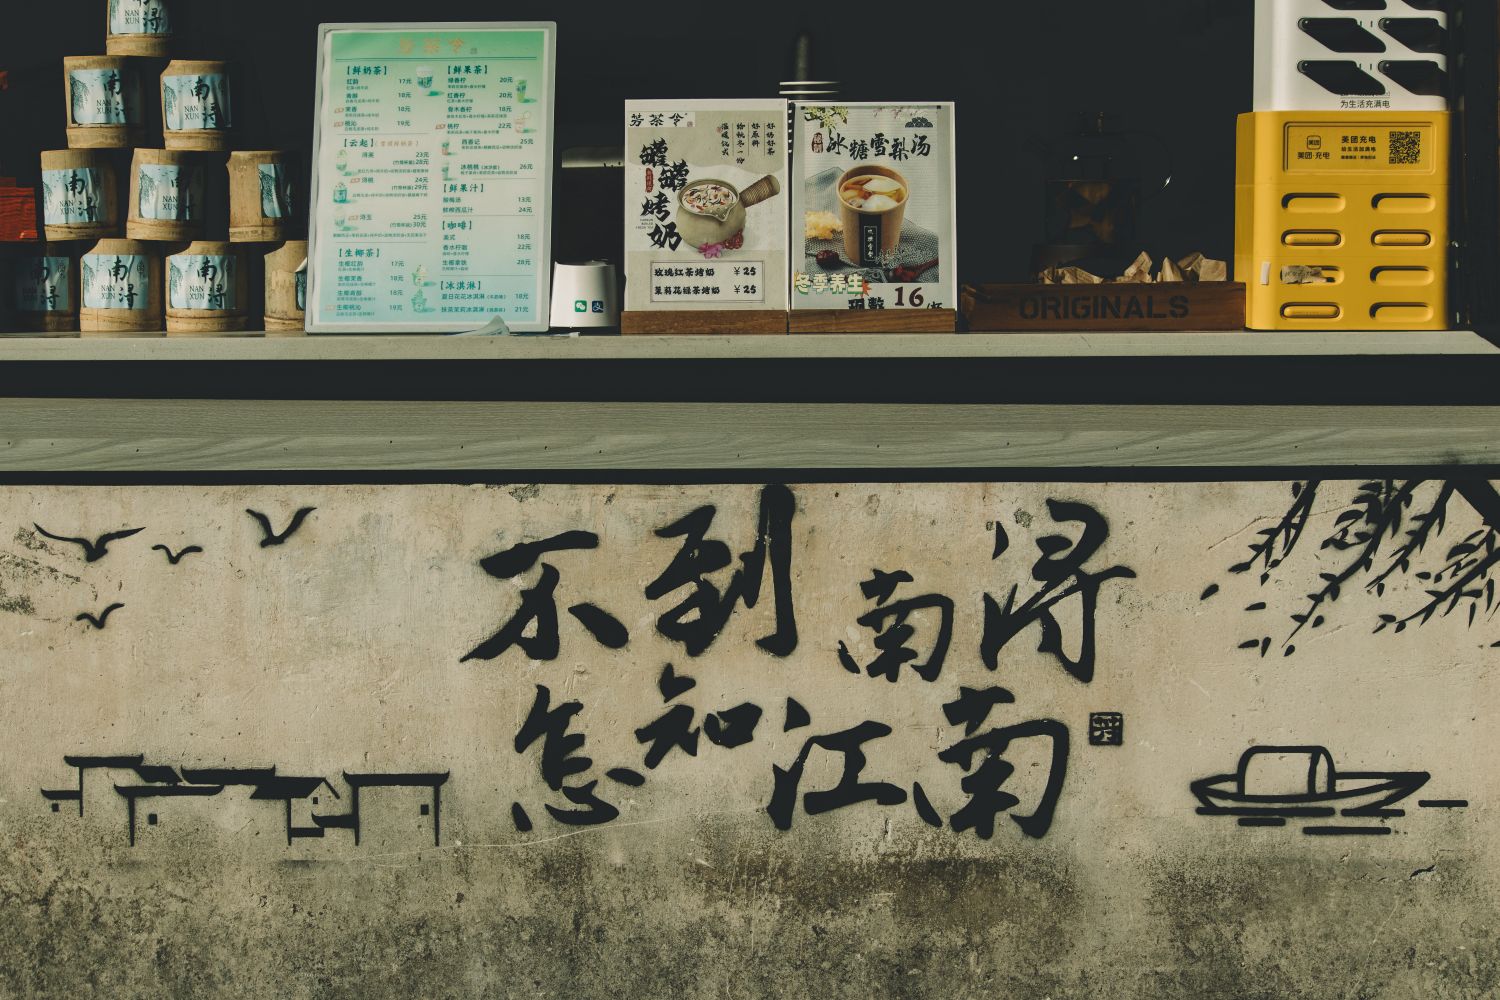 南浔
NAN
XUN
南浔
南浔
NAN
XUN
南浔
NAN
XUN
南浔
南浔
南浔
茶令
【鲜奶茶】
红韵 17元
18元
18元
桃沁 19元
【云起】
浔美 23元
(竹筒杯装)28元
浔桃 24元
(竹筒杯装)29元
浔玉 25元
(竹筒杯装)30元
【生椰茶】
生椰红韵 17元
生椰茉香 18元
生椰青醇 18元
生椰桃沁 19元
【鲜果茶】
绿香柠 20元
红香柠 20元
青木香柠 18元
桃柠 22元
西香记 25元
冰桃桃(冰沙款) 26元
【鲜果汁】
酸梅汤 13元
鲜榨西瓜汁 24元
【咖啡】
美式 18元
香水柠咖 22元
生椰拿铁 28元
【冰淇淋】
夏日花花冰淇淋 18元
抹茶茉莉冰淇淋 21元
支
茶令
好奶好茶
好原料
给秋冬一份
温暖仪式
罐罐烤奶
玫瑰红茶烤奶 ¥25
茉莉花绿茶烤奶 ¥25
冰糖雪梨汤
冬季养生
16
ORIGINALS
为生活充满电
美团
美团·充电
美团充电
给生活加满电
不到南浔
怎知江南